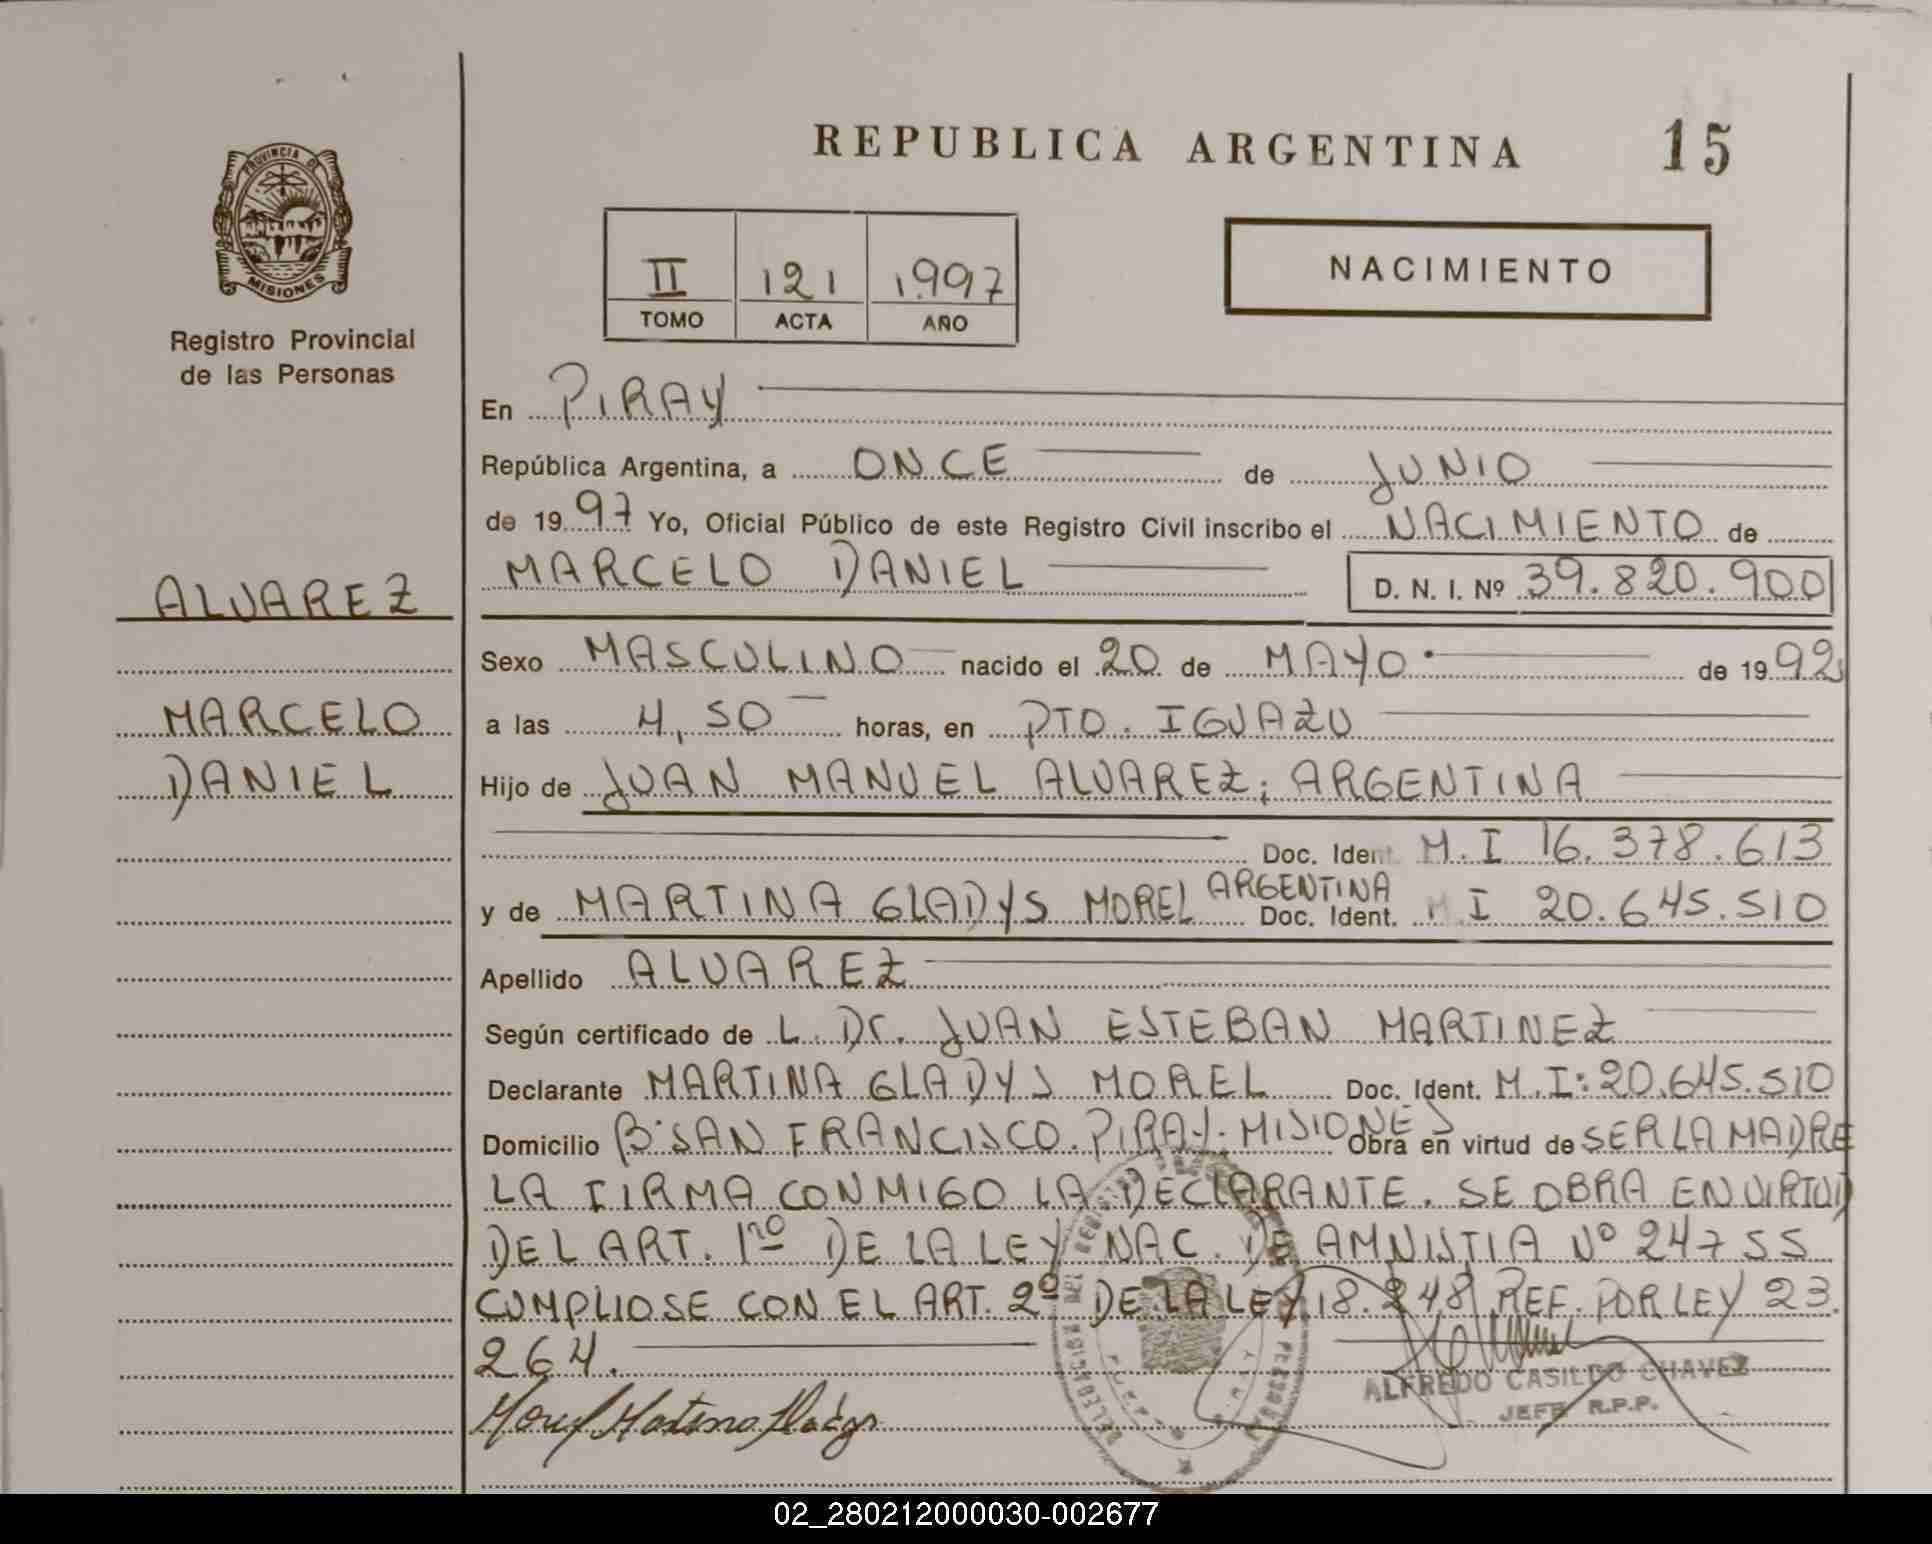 REPUBLICA ARGENTINA 15
PROVINCIA DE
MISIONES
Registro Provincial
de las Personas
II 121 1.997
TOMO ACTA AÑO
NACIMIENTO
En PIRAY
República Argentina, a ONCE de JUNIO
de 1997 Yo, Oficial Público de este Registro Civil inscribo el NACIMIENTO de
MARCELO DANIEL D. N. I. Nº 39.820.900
ALVAREZ
MARCELO
DANIEL
Sexo MASCULINO nacido el 20 de MAYO de 1992
a las 4,50 horas, en PTO. IGUAZU
Hijo de JUAN MANUEL ALVAREZ; ARGENTINA
Doc. Ident. M.I 16.378.613
y de MARTINA GLADYS MOREL ARGENTINA Doc. Ident. M.I 20.645.510
Apellido ALVAREZ
Según certificado de L. Dr. JUAN ESTEBAN MARTINEZ
Declarante MARTINA GLADYS MOREL Doc. Ident. M.I: 20.645.510
Domicilio Bº SAN FRANCISCO. PIRAY. MISIONES Obra en virtud de SER LA MADRE
LA FIRMA CONMIGO LA DECLARANTE. SE OBRA EN VIRTUD
DEL ART. 1ro DE LA LEY NAC. DE AMNISTIA Nº 24755
CUMPLIOSE CON EL ART. 2º DE LA LEY 18.248 REF. POR LEY 23.
264.
ALFREDO CASILDO CHAVEZ
JEFE R.P.P.
Morel Martina Gladys
02_280212000030-002677